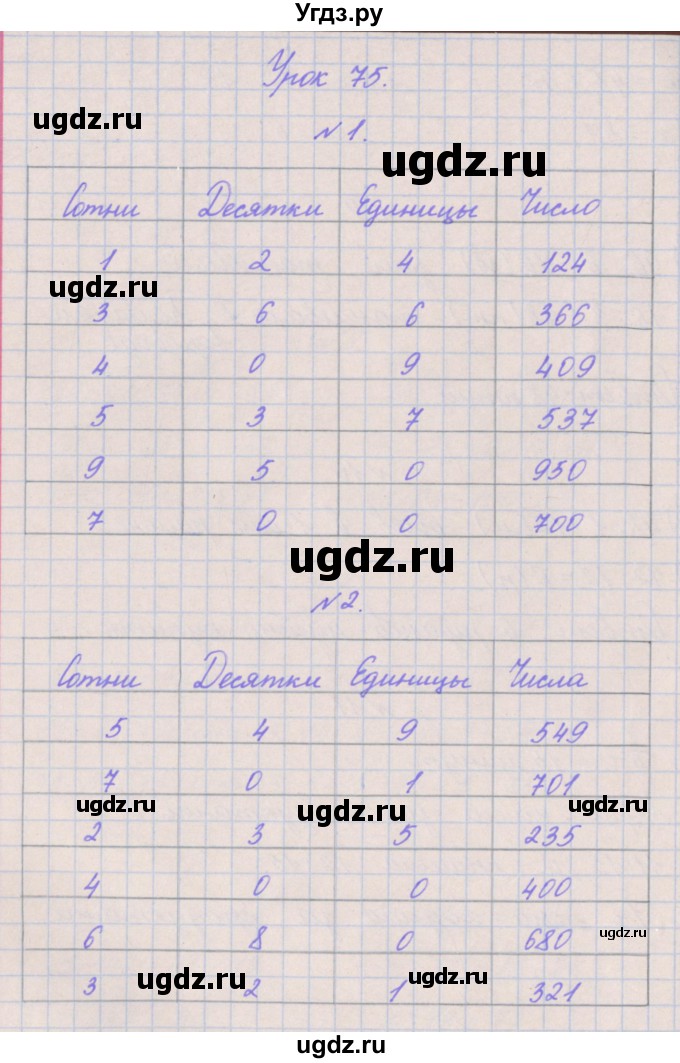 Угдз.ру
Урок 75.
ugdz.ru
№1.
ugdz.ru
Сотни Десятки Единицы Число
1 2 4 124
ugdz.ru
3 6 6 366
4 0 9 409
5 3 7 537
9 5 0 950
7 0 0 700
ugdz.ru
№2.
Сотни Десятки Единицы Числа
5 4 9 549
7 0 1 701
ugdz.ru ugdz.ru ugdz.ru
2 3 5 235
4 0 0 400
6 8 0 680
ugdz.ru
3 2 1 321
ugdz.ru ugdz.ru
ugdz.ru